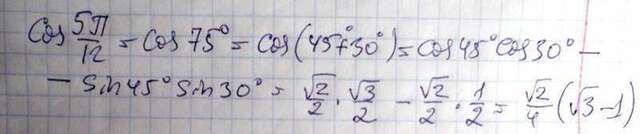 cos 5π/12 = cos 75° = cos(45°+30°) = cos45°cos30° −
− sin45°sin30° = √2/2 · √3/2 − √2/2 · 1/2 = √2/4 (√3−1)